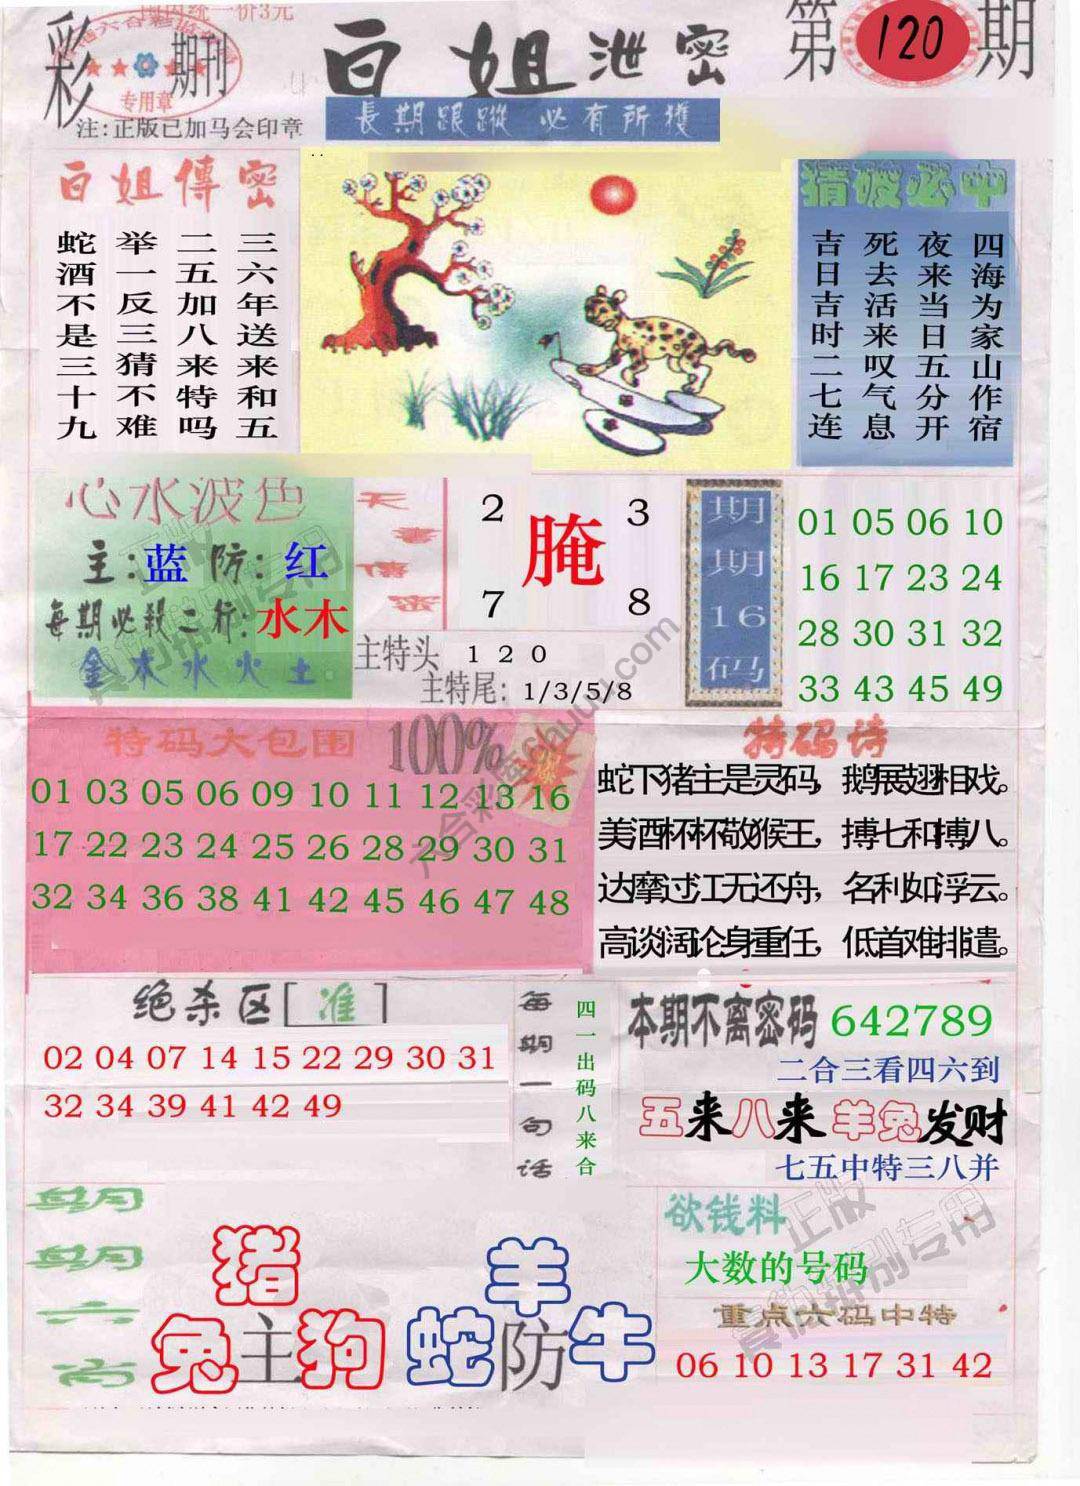 国内统一价3元
彩
期刊
专用章
注:正版已加马会印章
白姐泄密
第
120
期
長期跟蹤 必有所獲
白姐傳密
三六年送来和五
二五加八来特吗
举一反三猜不难
蛇酒不是三十九
猜破必中
四海为家山作宿
夜来当日五分开
死去活来叹气息
吉日吉时二七连
心水波色
主:蓝 防:红
每期必殺二行:水木
金木水火土
天書傳密
2 3
腌
7 8
主特头 1 2 0
主特尾: 1/3/5/8
期期16码
01 05 06 10
16 17 23 24
28 30 31 32
33 43 45 49
特码大包围
100%
爆
01 03 05 06 09 10 11 12 13 16
17 22 23 24 25 26 28 29 30 31
32 34 36 38 41 42 45 46 47 48
特码诗
蛇下猪主是灵码，鹅展翅相戏。
美酒杯杯敬猴王，搏七和搏八。
达摩过江无还舟，名利如浮云。
高谈阔论身重任，低首难排遣。
绝杀区[准]
02 04 07 14 15 22 29 30 31
32 34 39 41 42 49
每期一句话
四一出码八来合
本期不离密码 642789
二合三看四六到
五来八来 羊兔发财
七五中特三八并
猪
兔主狗
羊
蛇防牛
欲钱料
大数的号码
重点六码中特
06 10 13 17 31 42